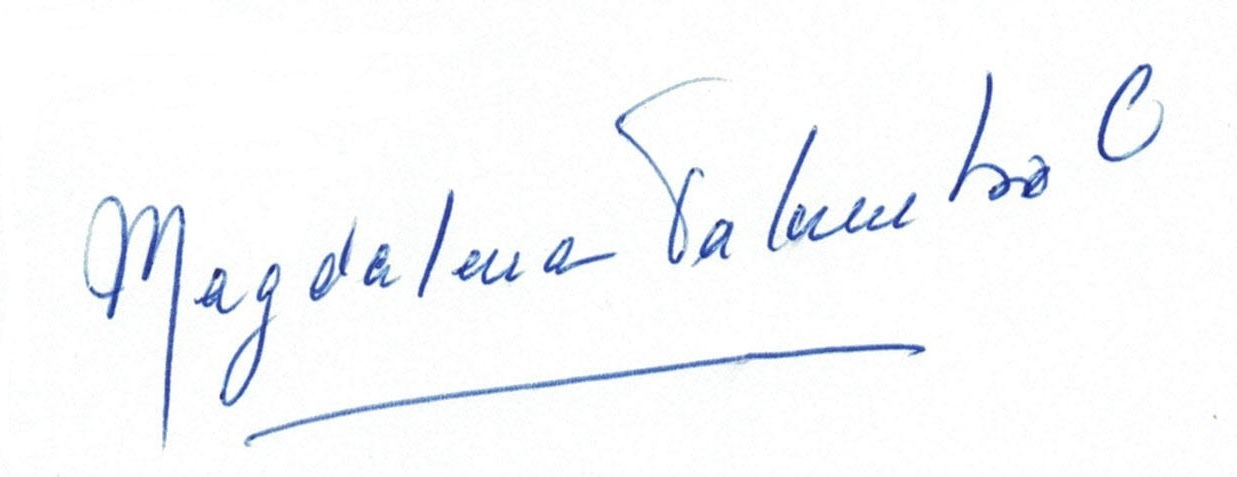 Magdalena Palumbo C